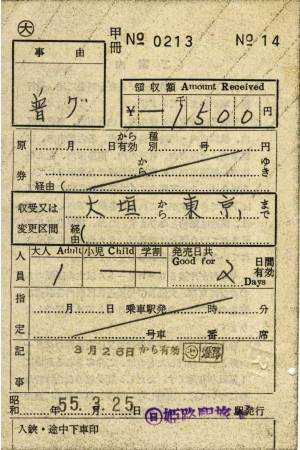 大 甲冊 No 0213 No 14
事由
普グ
領収額 Amount Received
¥ 一千1500円
原券 月 日から有効 種別 号 円
から ゆき
経由(
収受又は変更区間 大垣から東京まで
経由(
人員 大人 Adult 小児 Child 学割 発売日共 Good for 日間有効 Days
1 2
指定 月 日 乗車駅発 時 分
号車 番 席
記事 3月26日から有効 姫路
昭和 55年3月25日 姫路駅 駅発行
入鋏・途中下車印